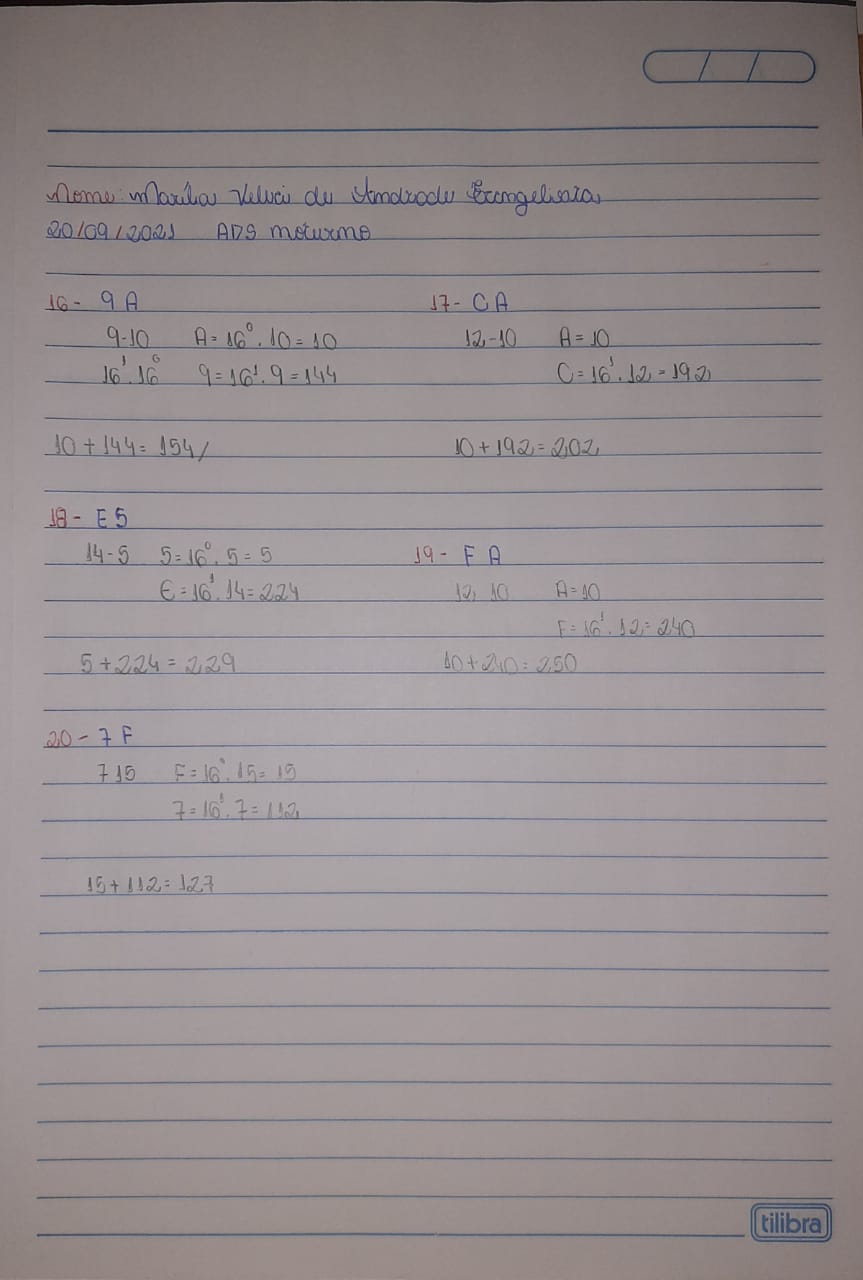 Nome: Marília Veluci de Andrade Evangelista
20/09/2021 ADS noturno
16- 9 A
9-10 A= 16⁰ . 10 = 10
16¹ . 16⁰ 9 = 16¹ . 9 = 144
10 + 144 = 154/
17- C A
12-10 A = 10
C = 16¹ . 12 = 192
10 + 192 = 202
18- E 5
14-5 5 = 16⁰ . 5 = 5
E = 16¹ . 14 = 224
5 + 224 = 229
19- F A
12 10 A = 10
F = 16¹ . 12 = 240
10 + 240 = 250
20- 7 F
7 15 F = 16⁰ . 15 = 15
7 = 16¹ . 7 = 112
15 + 112 = 127
tilibra